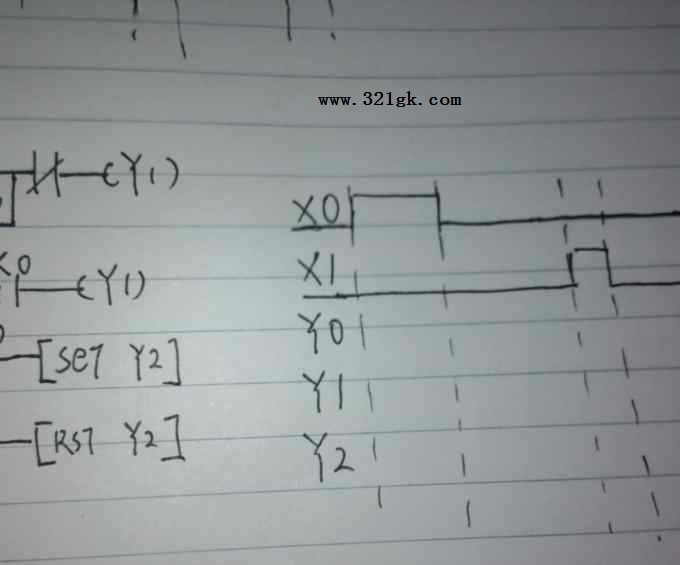 www.321gk.com
(Y1)
X0
X0
(Y1)
X1
Y0
[SET Y2]
Y1
[RST Y2]
Y2